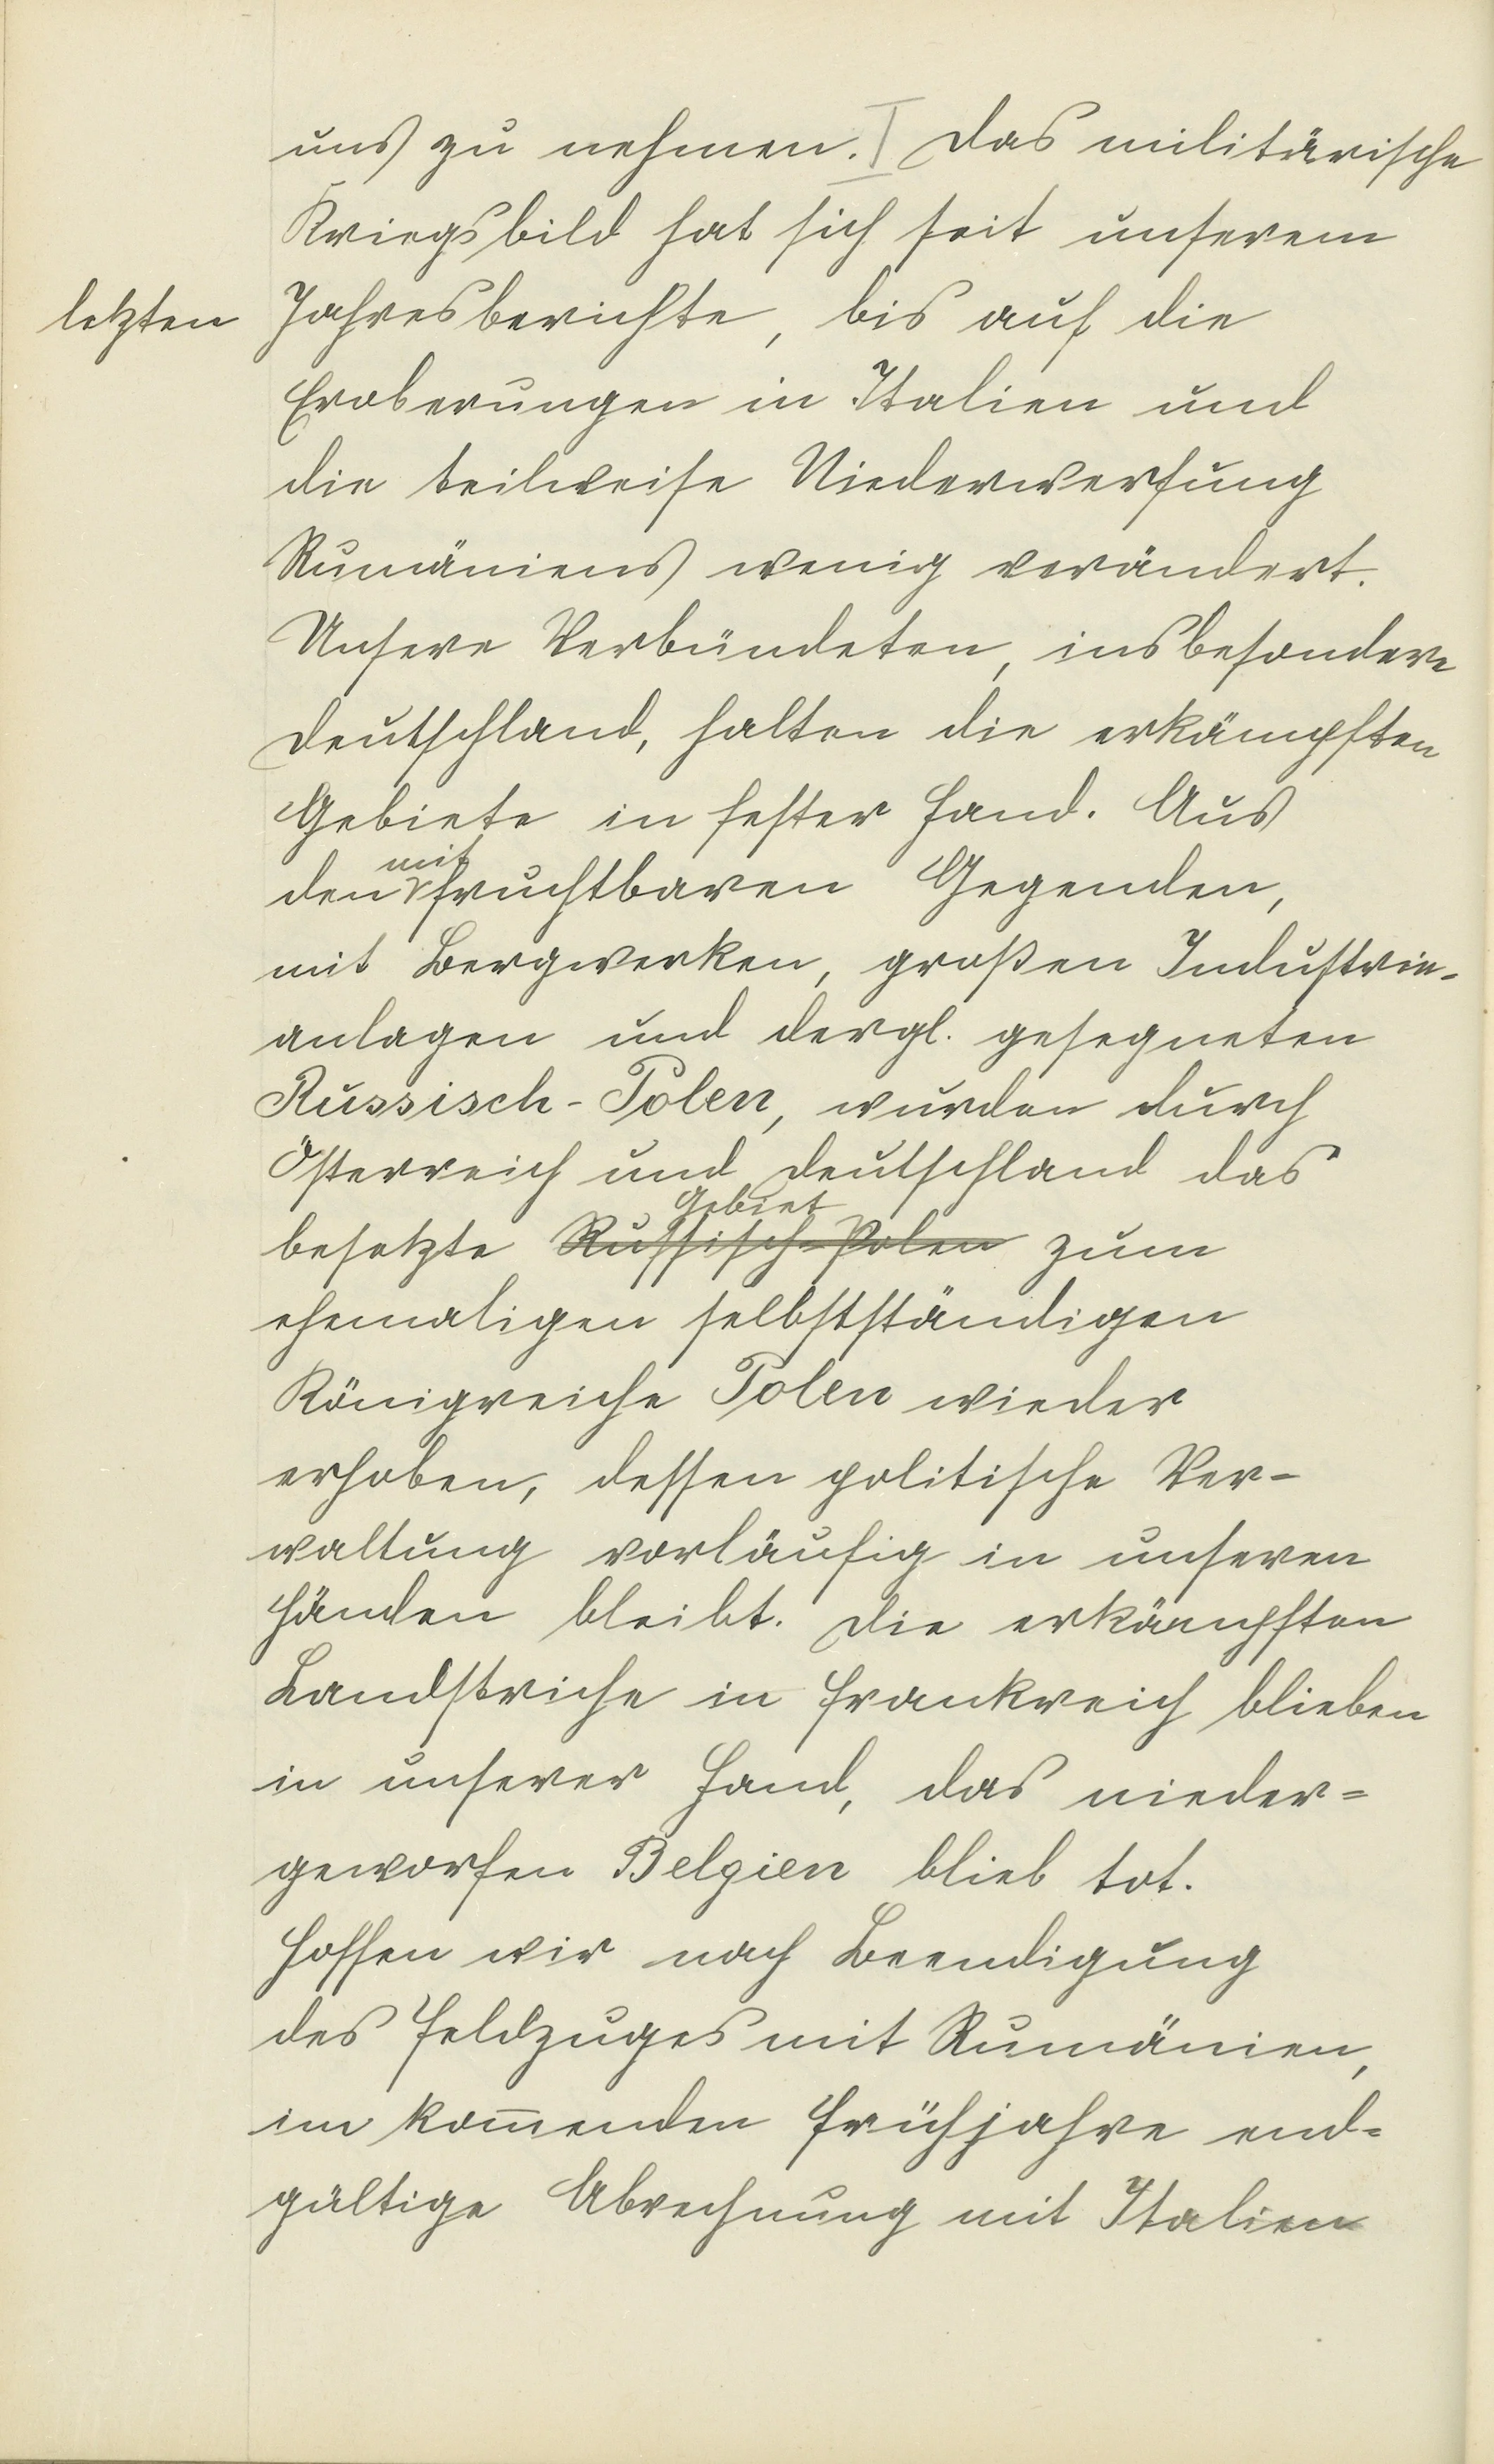 uns zu nehmen. Das militärische
Kriegsbild hat sich seit unserem
letzten Jahresberichte, bis auf die
Eroberungen in Italien und
die teilweise Niederwerfung
Rumäniens wenig verändert.
Unsere Verbündeten, insbesondere
Deutschland, halten die erkämpften
Gebiete in fester Hand. Aus
mit
den fruchtbaren Gegenden,
mit Bergwerken, großen Industrie-
anlagen und dergl. gesegneten
Russisch-Polen, wurden durch
Österreich und Deutschland das
Gebiet
besetzte Russisch-Polen zum
ehemaligen selbstständigen
Königreiche Polen wieder
erhoben, dessen politische Ver-
waltung vorläufig in unseren
Händen bleibt. Die erkämpften
Landstriche in Frankreich blieben
in unserer Hand, das nieder=
geworfen Belgien blieb tot.
Hoffen wir nach Beendigung
des Feldzuges mit Rumänien,
im kom̅enden Frühjahre end=
gültige Abrechnung mit Italien